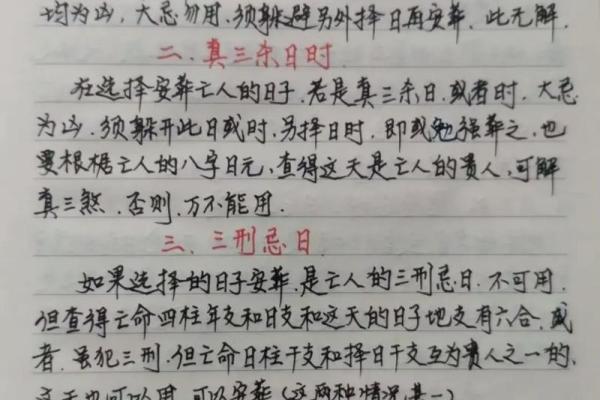 均为凶，大忌勿用，须躲避另外择日再安葬，此无解.
二、真三杀日时
在选择安葬亡人的日子，若是真三杀日，或者时，大忌
为凶，须躲开此日或时，另择日时，即或勉强葬之，也
要根椐亡人的八字日元、查得这天是亡人的贵人，可解
真三煞，否则，万不能用.
三、三刑忌日
如果选择的日子安葬，是亡人的三刑忌日，不可用，
但查得亡命四柱年支和日支和这天的日子地支有六合，或
者，虽犯三刑，但亡命日柱干支和择日干支互为贵人之一的，
这天也可以用，可以安葬（这两种情况其一）